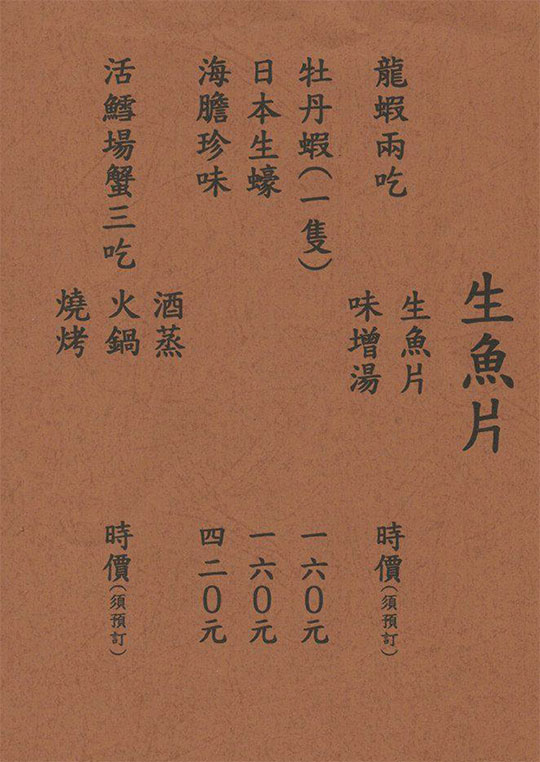 生魚片
龍蝦兩吃
生魚片
味增湯
時價(須預訂)
牡丹蝦(一隻)
一六0元
日本生蠔
一六0元
海膽珍味
四二0元
活鱈場蟹三吃
酒蒸
火鍋
燒烤
時價(須預訂)